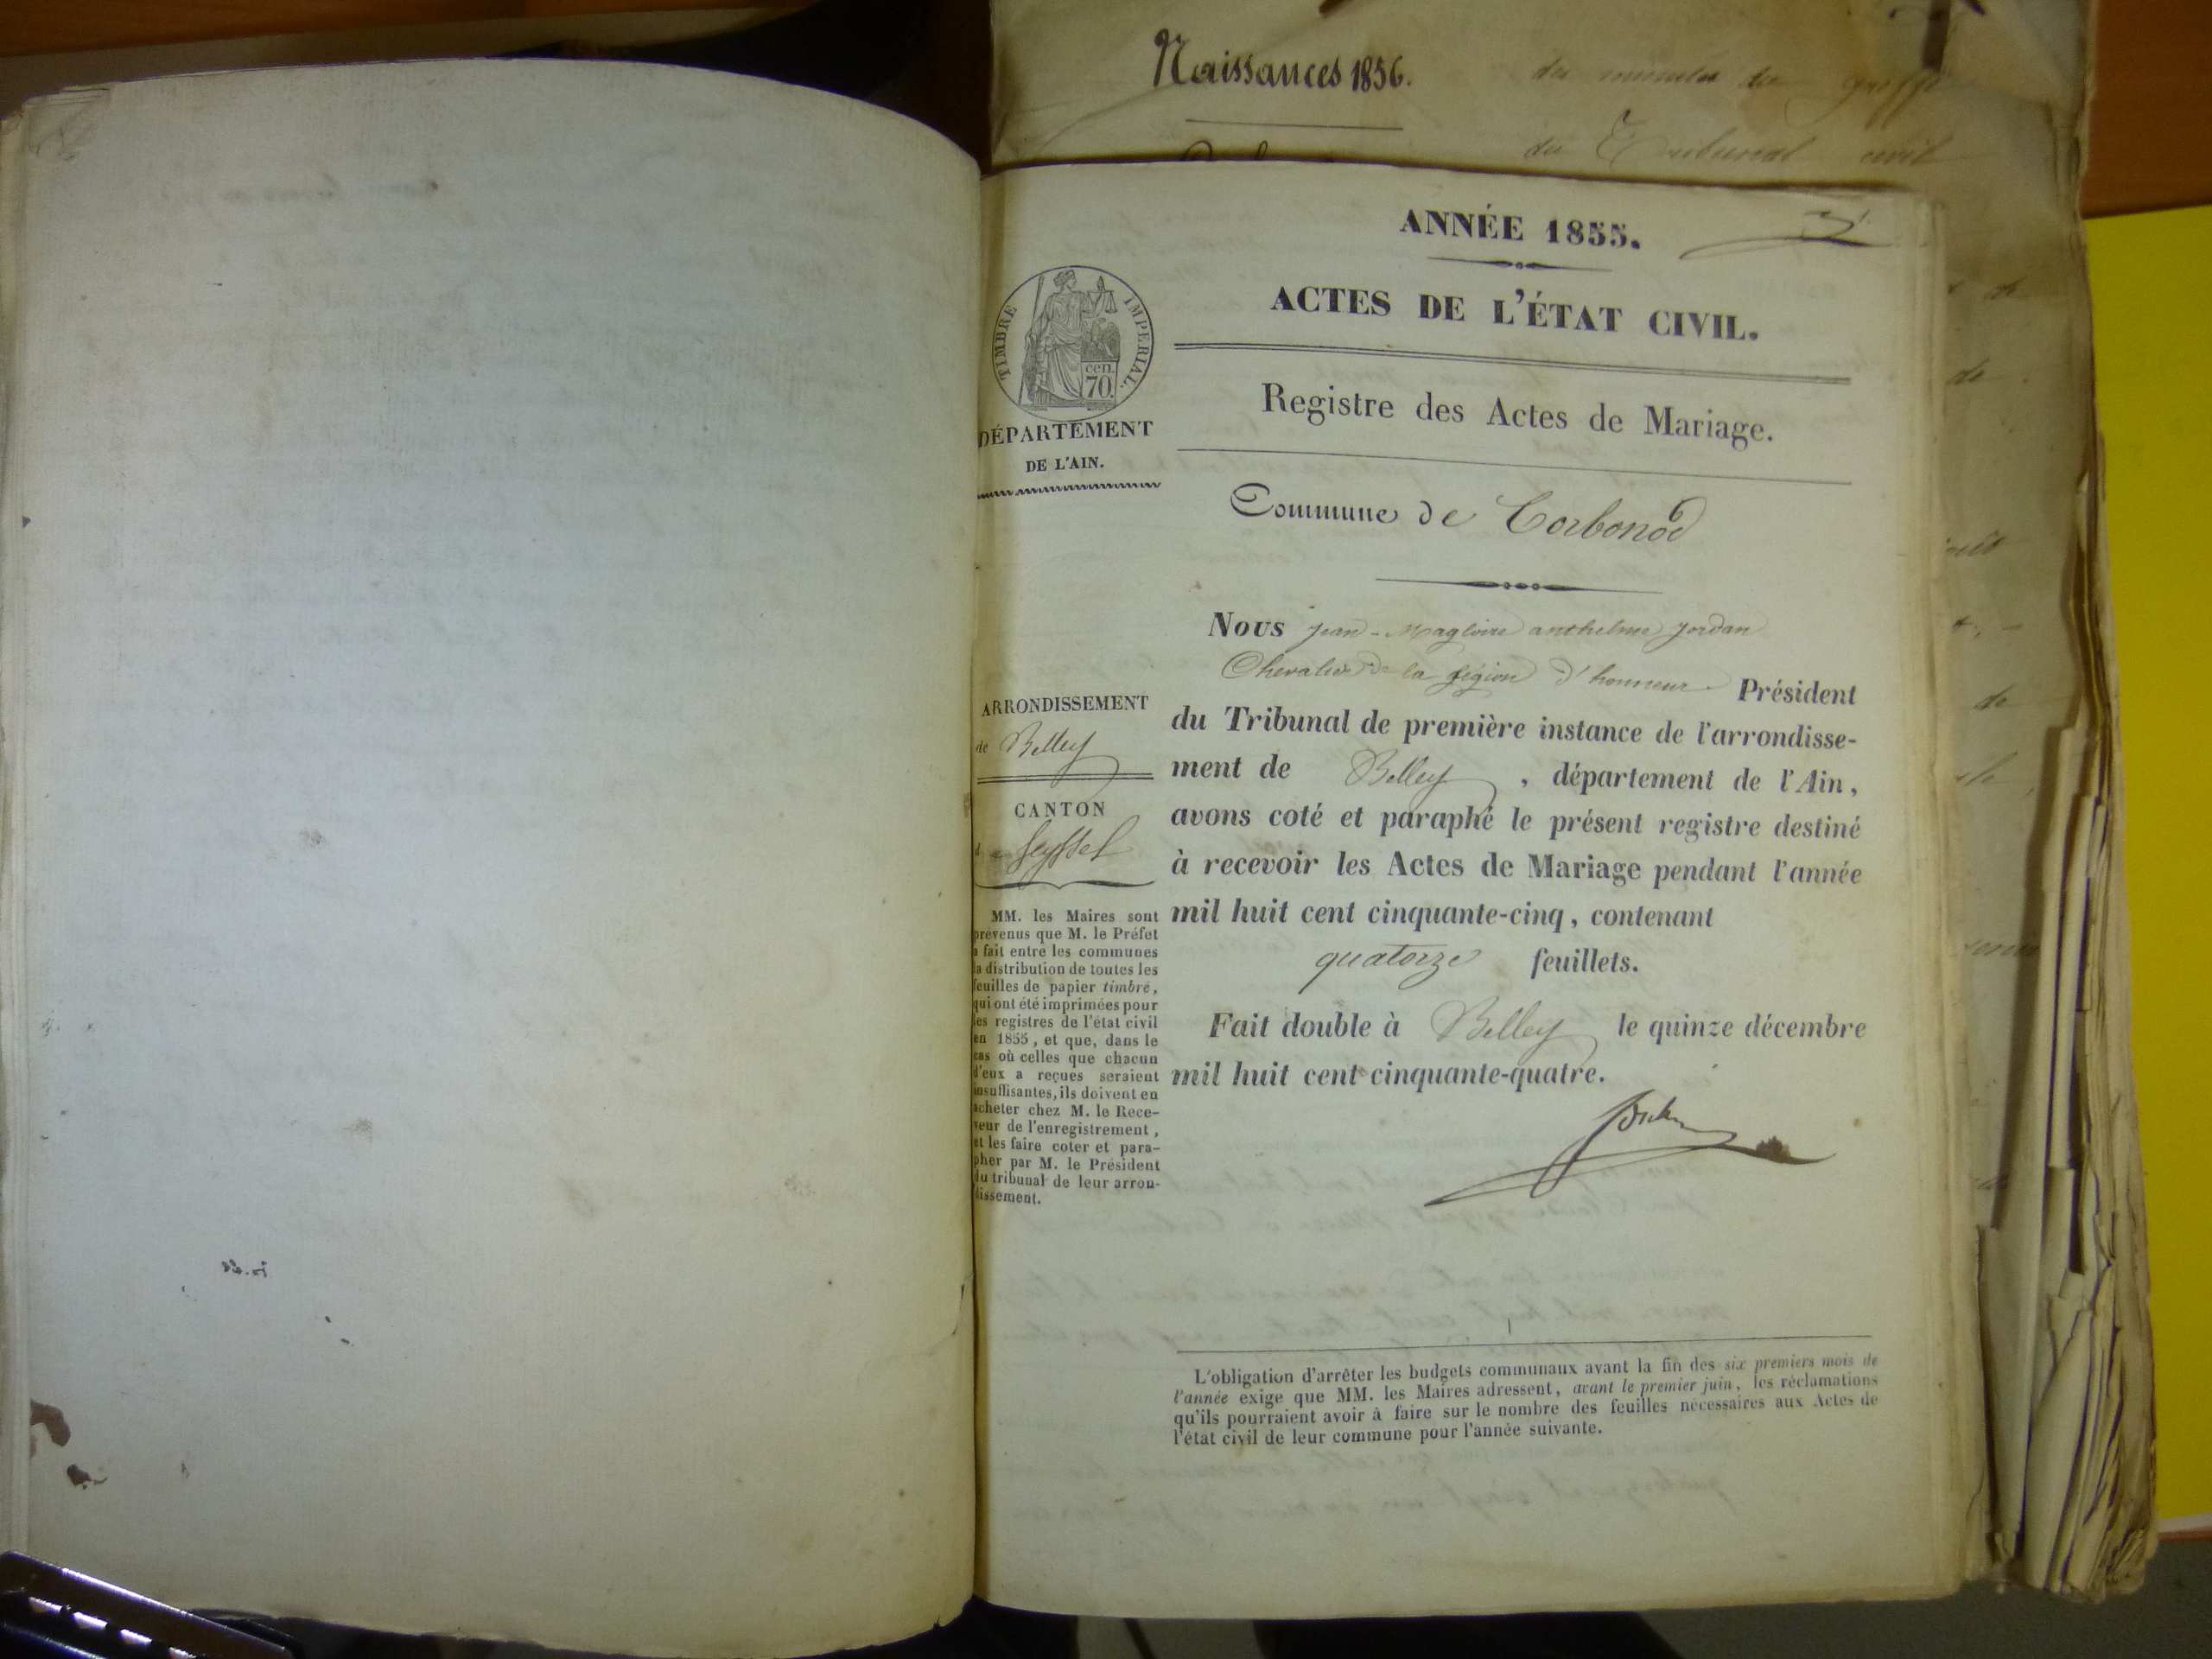 Naissances 1856.
des minutes du greffe
du Tribunal civil
ANNÉE 1855.
ACTES DE L'ÉTAT CIVIL.
TIMBRE IMPERIAL.
cen.
70.
Registre des Actes de Mariage.
DÉPARTEMENT
DE L'AIN.
Commune de Corbonod
Nous jean-Magloire anthelme Jordan
Chevalier de la légion d'honneur Président
du Tribunal de première instance de l'arrondisse-
ment de Belley, département de l'Ain,
avons coté et paraphé le présent registre destiné
à recevoir les Actes de Mariage pendant l'année
mil huit cent cinquante-cinq, contenant
quatorze feuillets.
Fait double à Belley le quinze décembre
mil huit cent cinquante-quatre.
ARRONDISSEMENT
de Belley
CANTON
d Seyssel
MM. les Maires sont
prévenus que M. le Préfet
a fait entre les communes
la distribution de toutes les
feuilles de papier timbré,
qui ont été imprimées pour
les registres de l'état civil
en 1855, et que, dans le
cas où celles que chacun
d'eux a reçues seraient
insuffisantes, ils doivent en
acheter chez M. le Rece-
veur de l'enregistrement,
et les faire coter et para-
pher par M. le Président
du tribunal de leur arron-
dissement.
L'obligation d'arrêter les budgets communaux avant la fin des six premiers mois de
l'année exige que MM. les Maires adressent, avant le premier juin, les réclamations
qu'ils pourraient avoir à faire sur le nombre des feuilles nécessaires aux Actes de
l'état civil de leur commune pour l'année suivante.